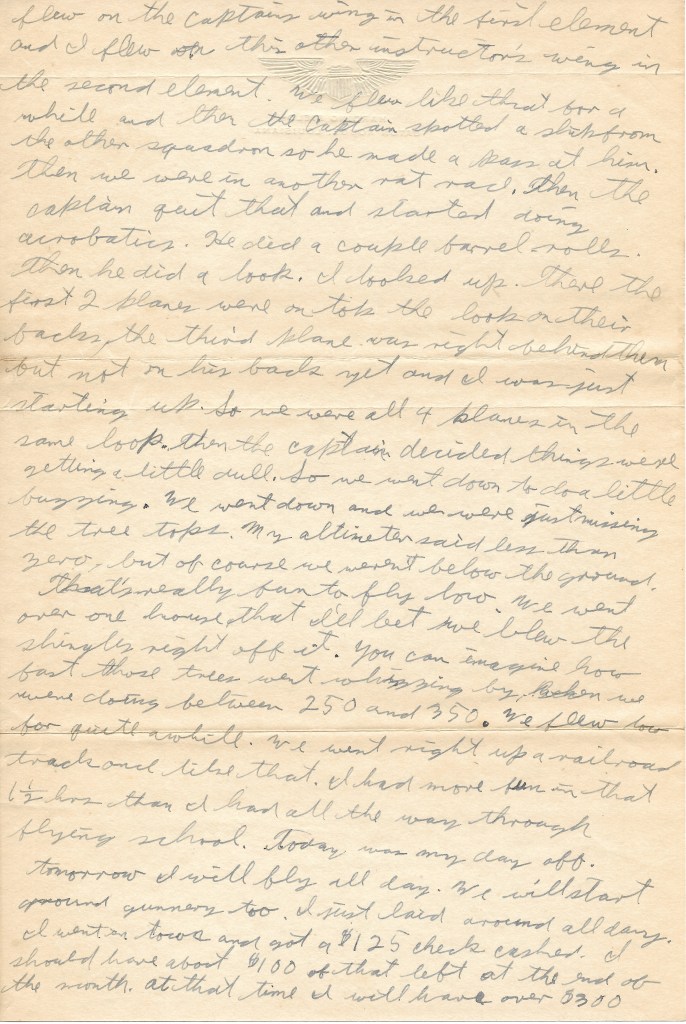 flew on the captains wing in the first element
and I flew on this other instructor's wing in
the second element. We flew like that for a
while and then the captain spotted a ship from
the other squadron so he made a pass at him.
Then we were in another rat race. Then the
captain quit that and started doing
acrobatics. He did a couple barrel rolls.
Then he did a loop. I looked up. There the
first 2 planes were on top the loop on their
backs, the third plane was right behind them
but not on his back yet and I was just
starting up. So we were all 4 planes in the
same loop. then the captain decided things were
getting a little dull. So we went down to do a little
buzzing. We went down and we were just missing
the tree tops. My altimeter said less than
zero, but of course we weren't below the ground.
That's really fun to fly low. We went
over one house that I'll bet we blew the
shingles right off it. You can imagine how
fast those trees went whizzing by when we
were doing between 250 and 350. We flew low
for quite awhile. We went right up a railroad
track and like that. I had more fun in that
1½ hrs than I had all the way through
flying school. Today was my day off.
tomorrow I will fly all day. We will start
ground gunnery too. I just laid around all day.
I went in town and got a $125 check cashed. I
should have about $100 of that left at the end of
the month. At that time I will have over $300